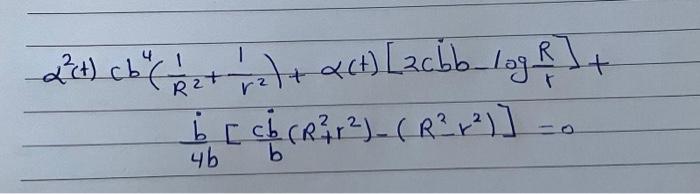 α²(t) cb⁴(1/R² + 1/r²) + α(t) [2cḃb - log R/r] +
ḃ/4b [cḃ/b (R² + r²) - (R² - r²)] = 0